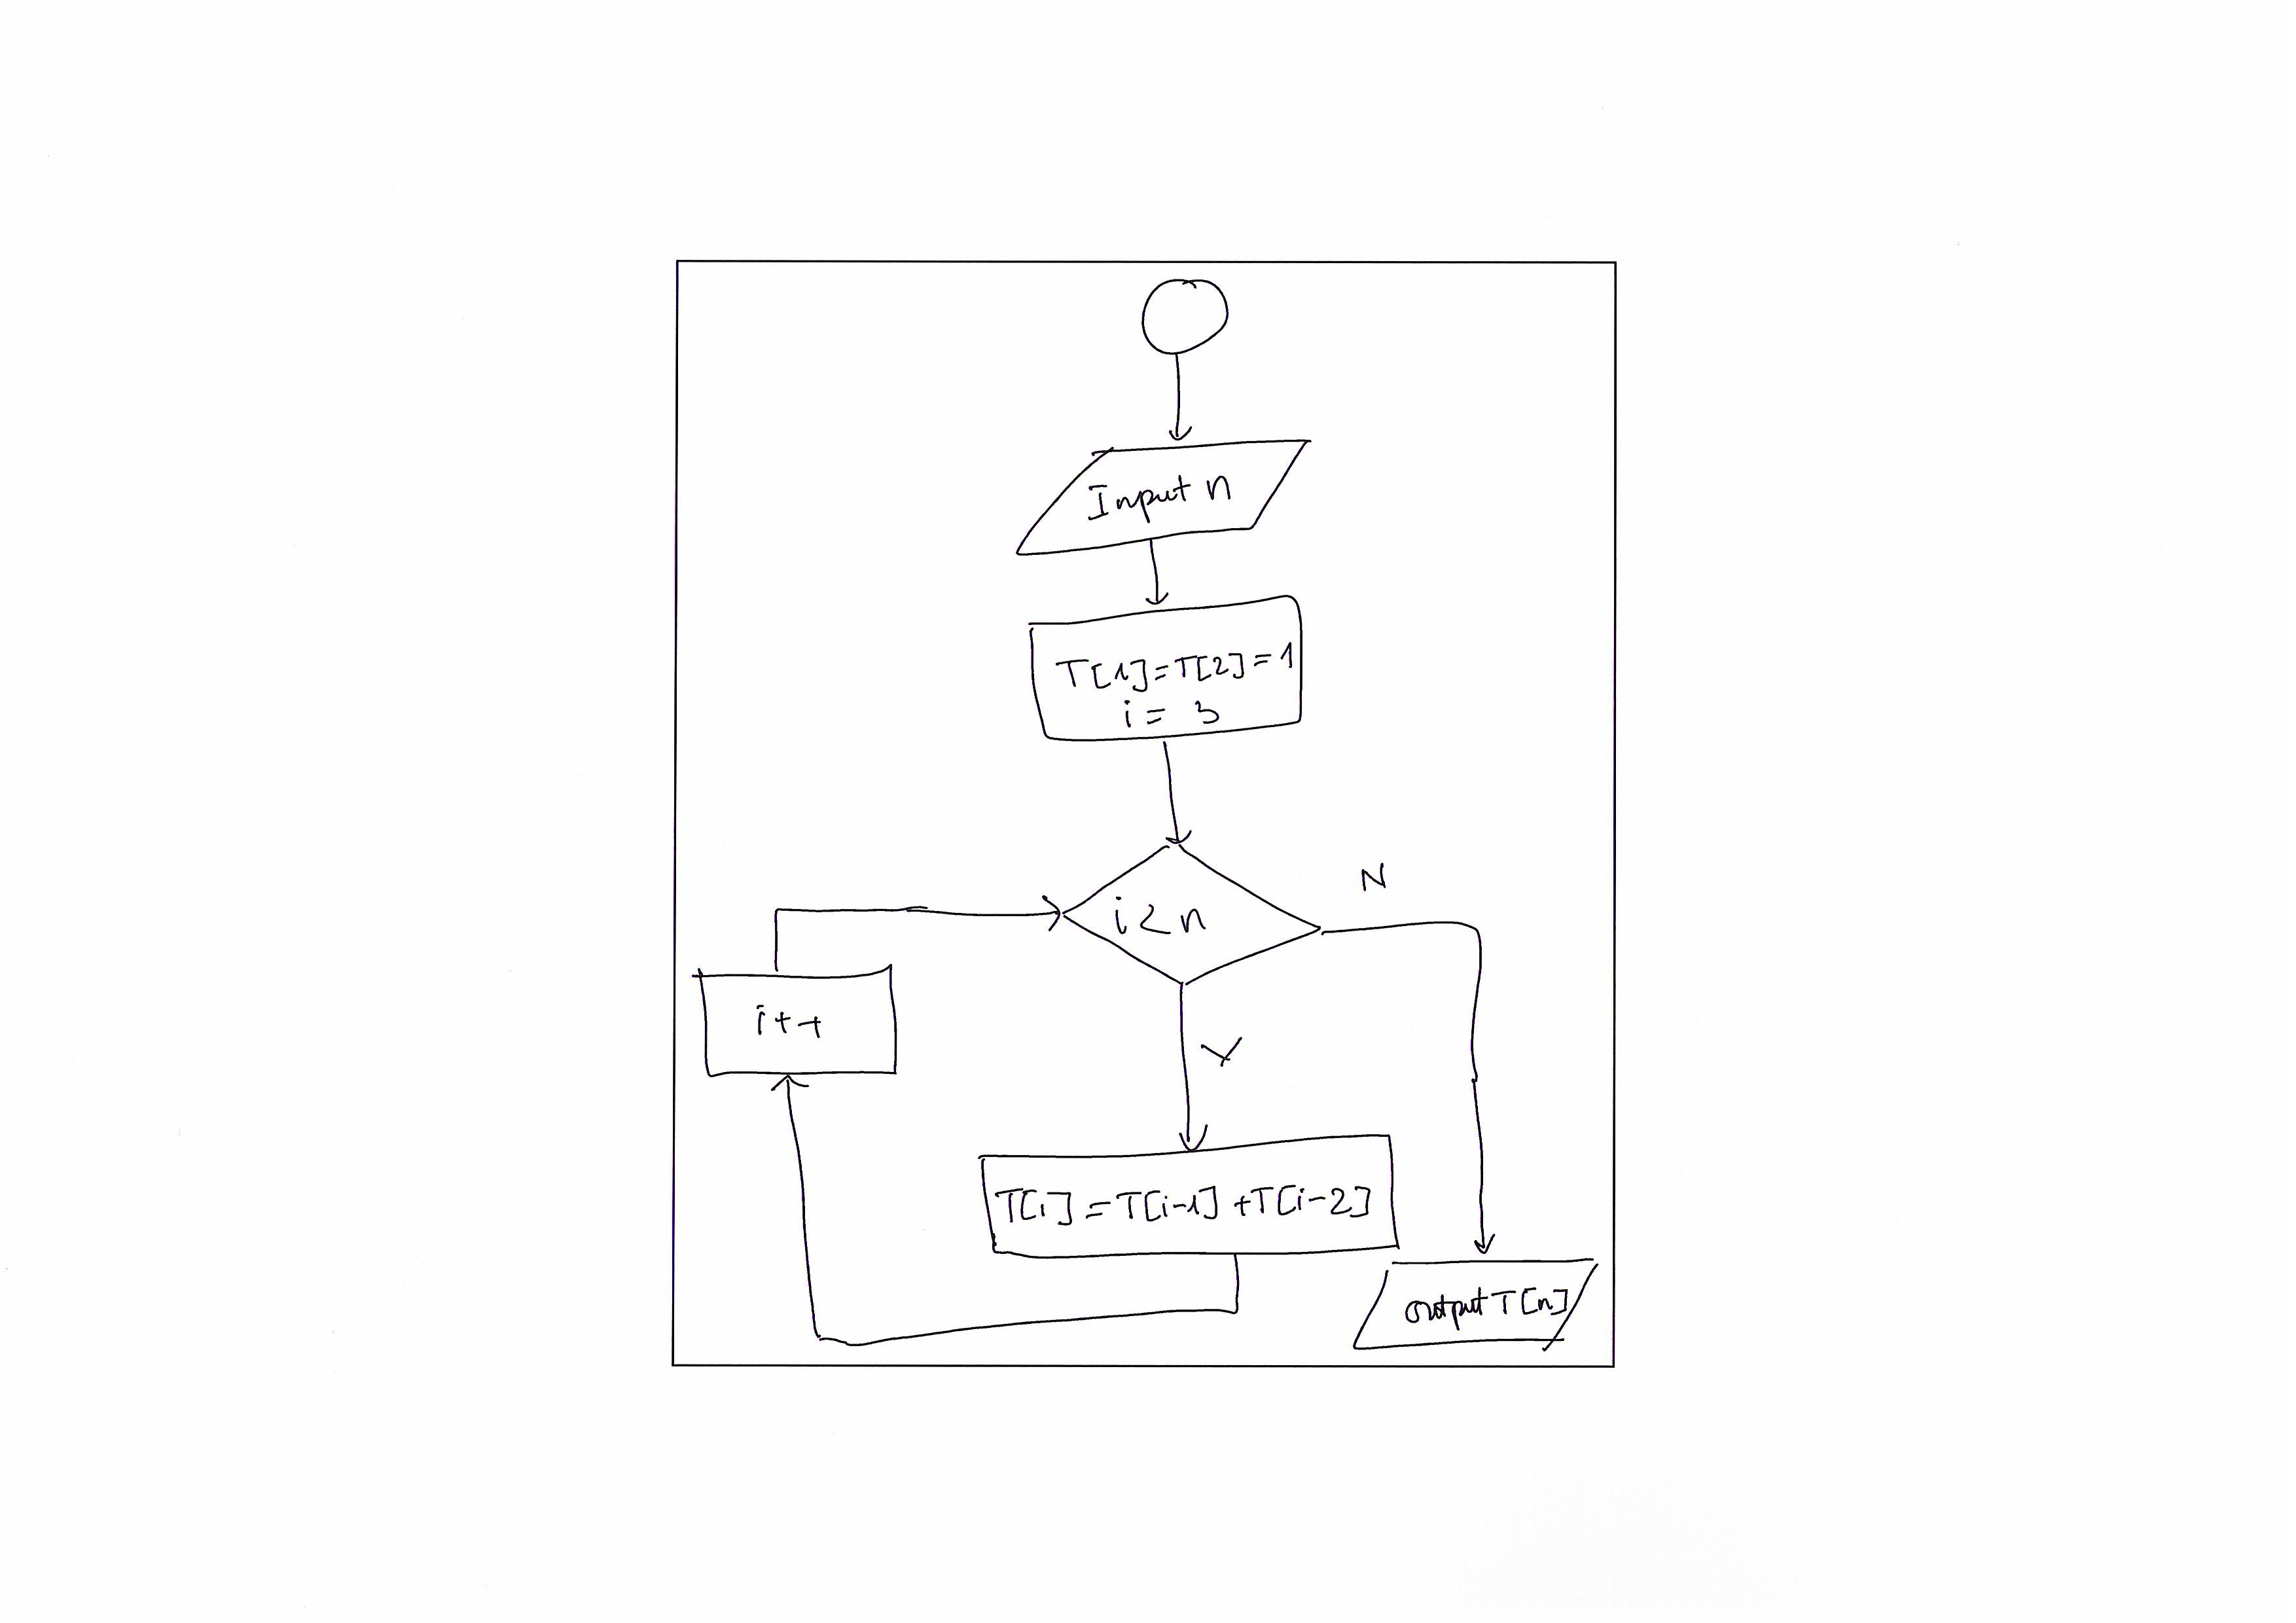 Input n
T[1]=T[2]=1
i= 3
i<n
N
i++
Y
T[i]=T[i-1]+T[i-2]
output T[n]